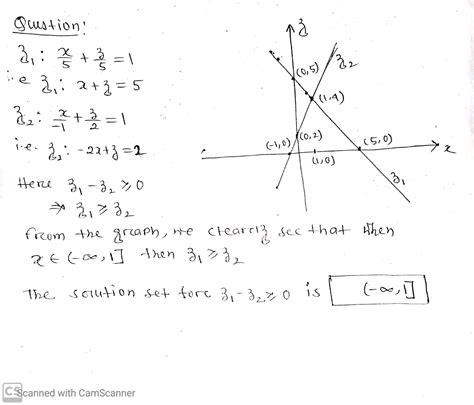 Question:
z₁: x/5 + z/5 = 1
i.e z₁: x+z = 5
z₂: x/-1 + z/2 = 1
i.e. z₂: -2x+z = 2
Here z₁ - z₂ ≥ 0
⇒ z₁ ≥ z₂
From the graph, we clearly see that when
x ∈ (-∞, 1] then z₁ ≥ z₂
The solution set for z₁ - z₂ ≥ 0 is (-∞, 1]
z
z₂
(0,5)
(1,4)
(0,2)
(-1,0)
(1,0)
(5,0)
x
z₁
CS Scanned with CamScanner